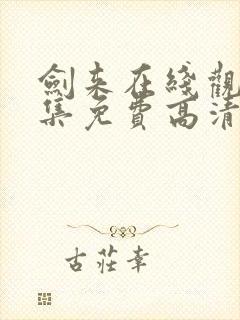 劍來在綫觀
集免費高清
古莊幸